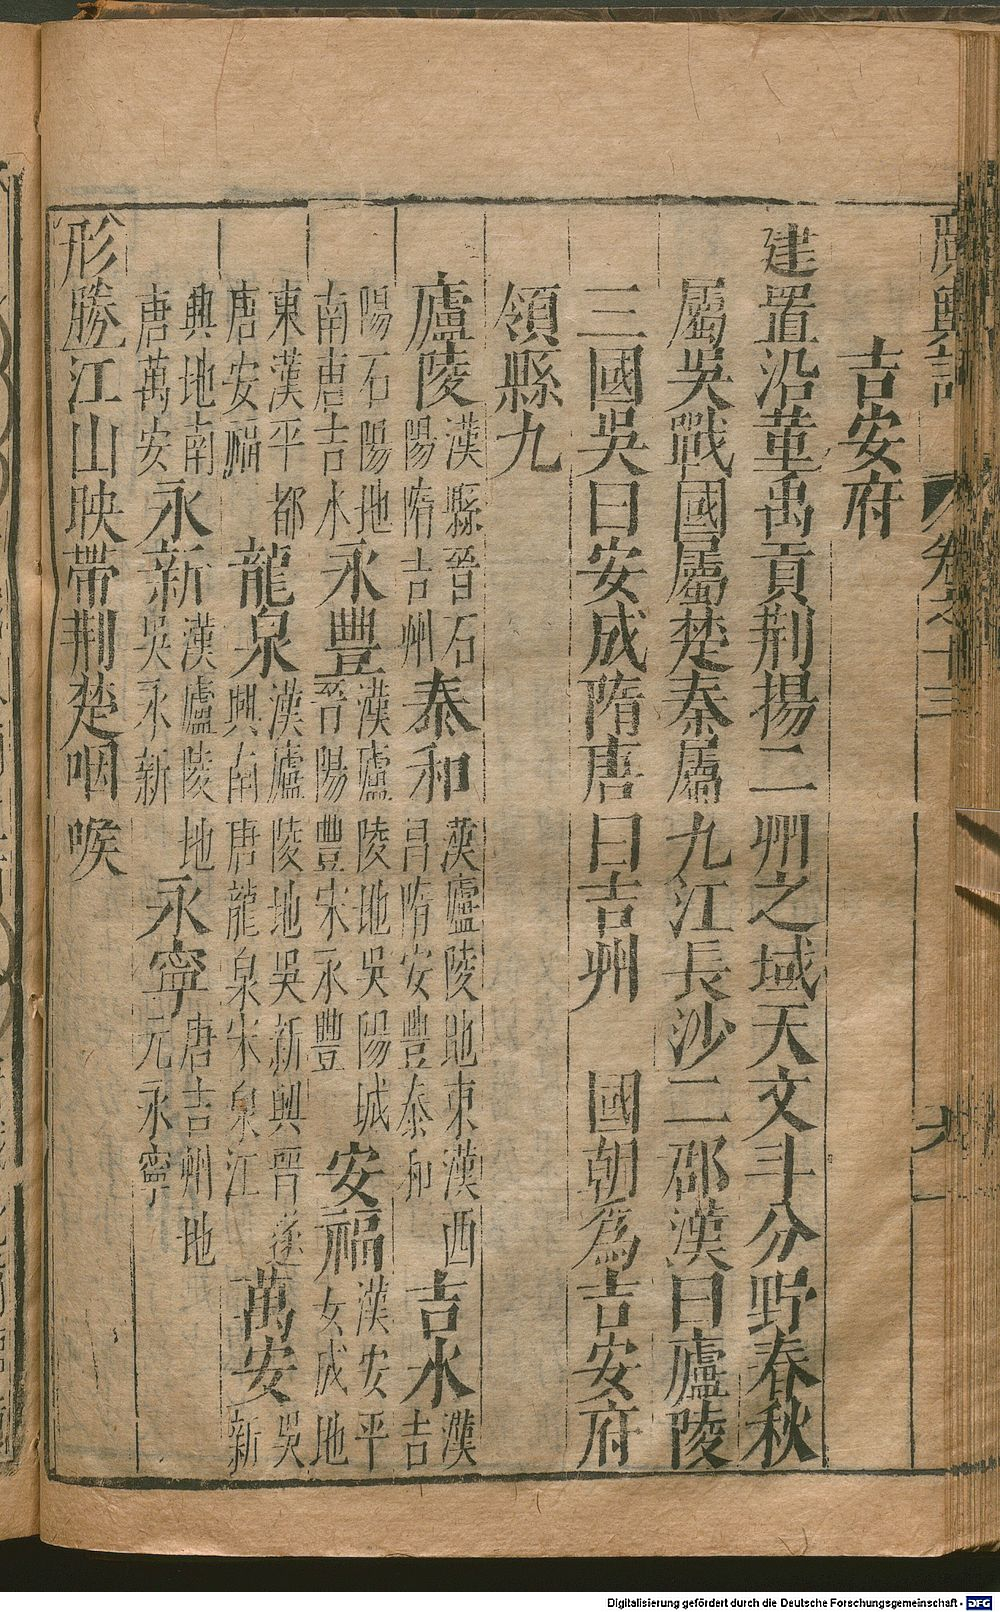 廣輿記 卷之十三 九
吉安府
建置沿革禹貢荆揚二州之域天文斗分野春秋
屬吳戰國屬楚秦屬九江長沙二郡漢曰廬陵
三國吳曰安成隋唐曰吉州 國朝為吉安府
領縣九
廬陵 漢縣晉石陽隋吉州 泰和 漢廬陵地東漢西昌隋安豐泰和 吉水 漢吉
陽石陽地南唐吉水 永豐 漢廬陵地吳陽城晉陽豐宋永豐 安福 漢安平安成地
東漢平都唐安福 龍泉 漢廬陵地吳新興晉遂興南唐龍泉宋泉江 萬安 吳新
興地南唐萬安 永新 漢廬陵地吳永新 永寧 唐吉州地元永寧
形勝江山映帶荆楚咽喉
Digitalisierung gefördert durch die Deutsche Forschungsgemeinschaft - DFG